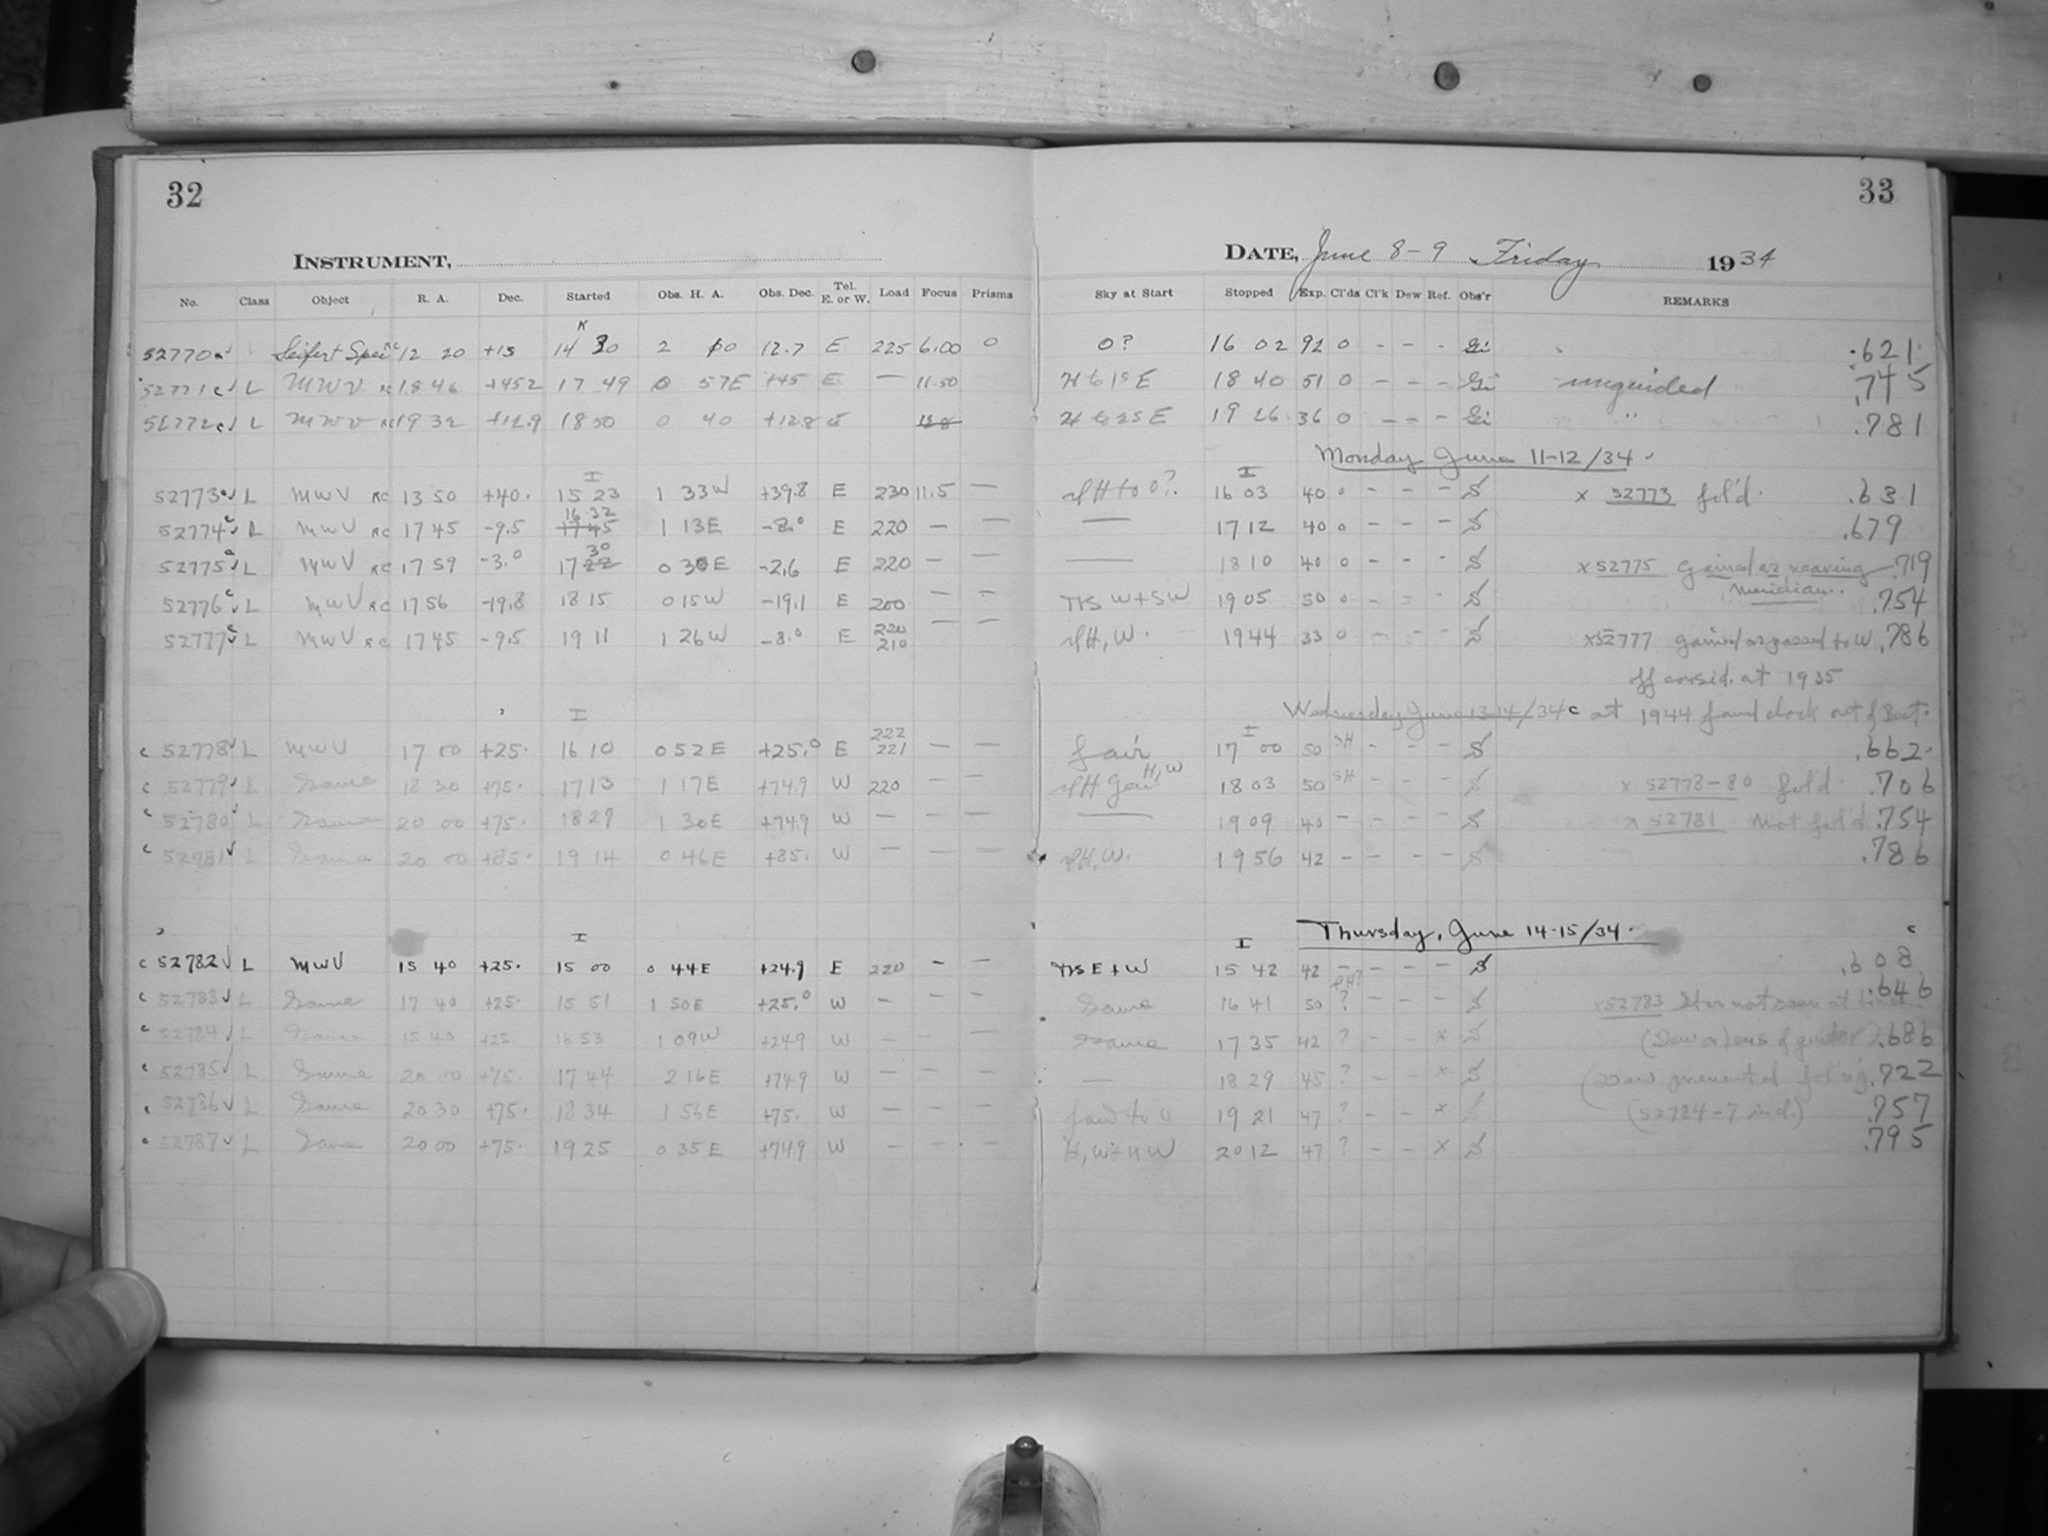 32
INSTRUMENT,
No. Class Object R. A. Dec. Started Obs. H. A. Obs. Dec. Tel. E. or W. Load Focus Prisms
52770 Seifert 12 20 +13 14 30 2 00 12.7 E 225 6.00 0
52771 c L MWV RC 18 46 +45.2 17 49 0 57E +45 E — 11.50
52772 c L MWV RC 19 32 +12.9 18 50 0 40 +12.8 E
I
52773 L MWV RC 13 50 +40. 15 23 1 33W +39.8 E 230 11.5 —
52774 c L MWV RC 17 45 -9.5 16 32 1 13E -8.0 E 220 — —
52775 L MWV RC 17 59 -3.0 17 30 0 30E -2.6 E 220 — —
52776 c L MWV RC 17 56 -19.8 18 15 0 15W -19.1 E 200 — —
52777 c L MWV RC 17 45 -9.5 19 11 1 26W -8.0 E 220 210 — —
I
c 52778 L MWV 17 00 +25. 16 10 0 52E +25.0 E 222 221 — —
c 52779 L Same 18 30 +75. 17 13 1 17E +74.9 W 220 — —
c 52780 L Same 20 00 +75. 18 29 1 30E +74.9 W — — —
c 52781 L Same 20 00 +85. 19 14 0 46E +85. W — — —
I
c 52782 L MWV 15 40 +25. 15 00 0 44E +24.9 E 220 — —
c 52783 L Same 17 40 +25. 15 51 1 50E +25.0 W — — —
c 52784 L Same 15 40 +25. 16 53 1 09W +24.9 W — — —
c 52785 L Same 20 00 +75. 17 44 2 16E +74.9 W — — —
52786 L Same 20 30 +75. 18 34 1 56E +75. W — — —
52787 L Same 20 00 +75. 19 25 0 35E +74.9 W — — —
33
DATE, June 8-9 Friday 1934
Sky at Start Stopped Exp. Cl'ds Cl'k Dew Ref. Obs'r REMARKS
0? 16 02 92 0 - - - Gi .621
E 18 40 51 0 - - - Gi unguided .745
E 19 26 36 0 - - - Gi " .781
Monday June 11-12/34.
I
H to 0? 16 03 40 0 - - - S x 52773 fol'd. .631
— 17 12 40 0 - - - S .679
— 18 10 40 0 - - - S x 52775 Gained as nearing .719
Meridian.
W+SW 19 05 50 0 - - - S .754
H, W. 19 44 33 0 - - - S x 52777 gained as passed to W .786
off consid. at 1935
Wednesday June 13-14/34 c at 1944 found clock out of Beat.
I
fair 17 00 50 SH - - - S .662
H, W 18 03 50 SH - - - S x 52778-80 fol'd. .706
— 19 09 40 - - - - S x 52781 Not fol'd .754
H, W. 19 56 42 - - - - S .786
Thursday, June 14-15/34.
I
E+W 15 42 42 - - - - S .608
Same 16 41 50 ? - - - S x 52783 Star not seen at times .646
Same 17 35 42 ? - - x S (Dew on lens of guider) .686
— 18 29 45 ? - - x S (Dew prevented fol'g. .722
fair to 0 19 21 47 ? - - x S (52784-7 incl.) .757
H, W+NW 20 12 47 ? - - x S .795